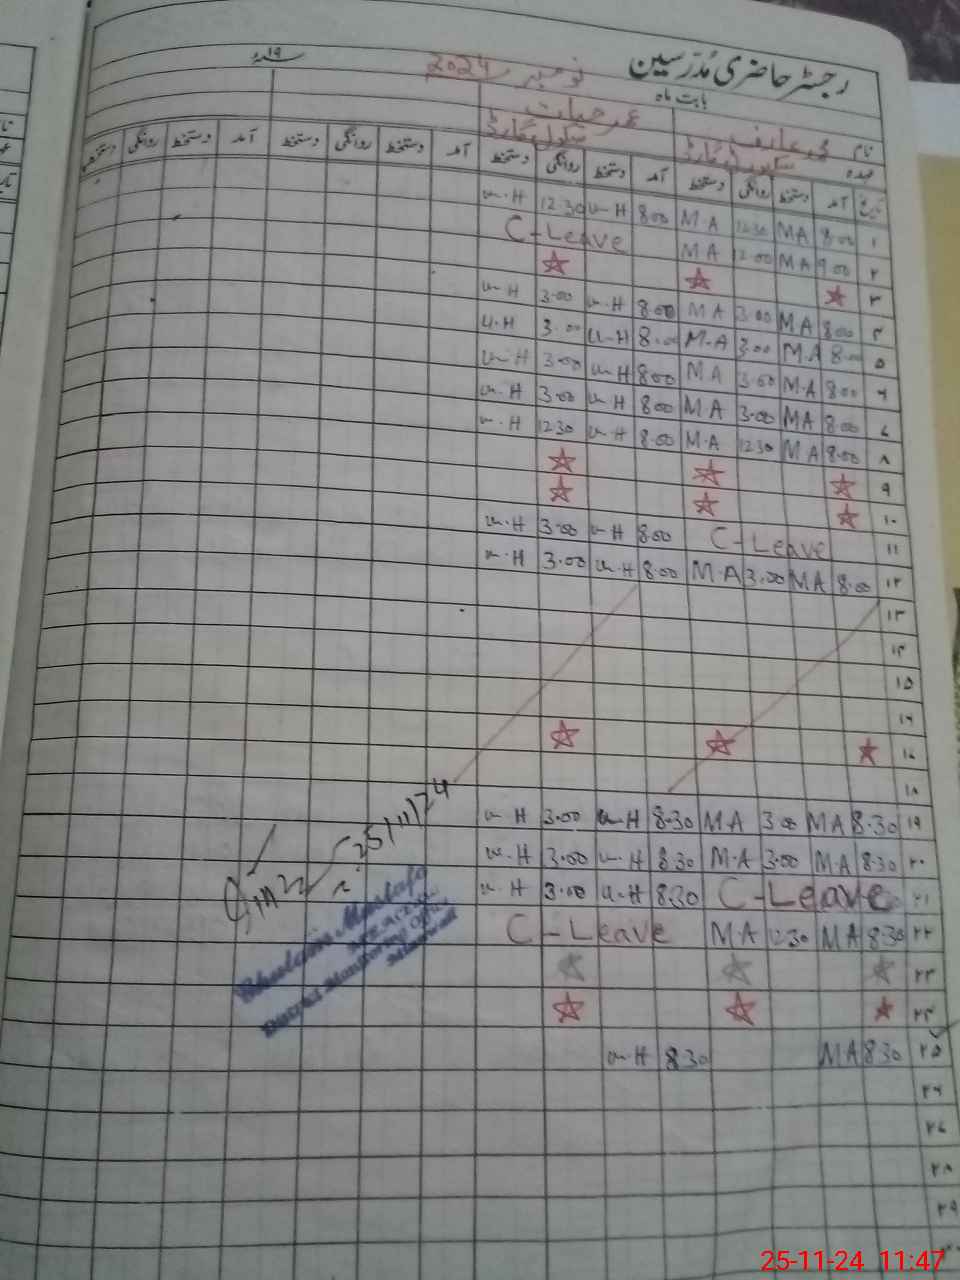 رجسٹر حاضری مُدرّسین
بابت ماہ نومبر 2024 ۱۹ء
نام محمد عارف عمر حیات
عہدہ سکیورٹی گارڈ سکیورٹی گارڈ
تاریخ آمد دستخط روانگی دستخط آمد دستخط روانگی دستخط آمد دستخط روانگی دستخط آمد دستخط روانگی دستخط
۱ 8:00 MA 12:30 M.A 8:00 u-H 12:30 u.H
۲ 9:00 MA 12:00 MA C-Leave
۳
۴ 8:00 MA 3:00 MA 8:00 u-H 3:00 u-H
۵ 8:00 M.A 3:00 M.A 8:00 u-H 3:00 u.H
۶ 8:00 M.A 3:00 MA 8:00 u-H 3:00 u-H
۷ 8:00 MA 3:00 M.A 8:00 u-H 3:00 u.H
۸ 8:00 MA 12:30 M.A 8:00 u-H 12:30 u.H
۹
۱۰
۱۱ C-Leave 8:00 u-H 3:00 u.H
۱۲ 8:00 MA 3:00 M.A 8:00 u-H 3:00 u.H
۱۳
۱۴
۱۵
۱۶
۱۷
۱۸
۱۹ 8:30 MA 3:00 MA 8:30 u-H 3:00 u-H
۲۰ 8:30 M.A 3:00 M.A 8:30 u-H 3:00 u.H
۲۱ C-Leave 8:30 u-H 3:00 u.H
۲۲ 8:30 MA 12:30 M.A C-Leave
۲۳
۲۴
۲۵ 8:30 MA 8:30 u-H
۲۶
۲۷
۲۸
۲۹
25/11/24
Ghulam Mustafa
District Monitoring Officer
25-11-24 11:47